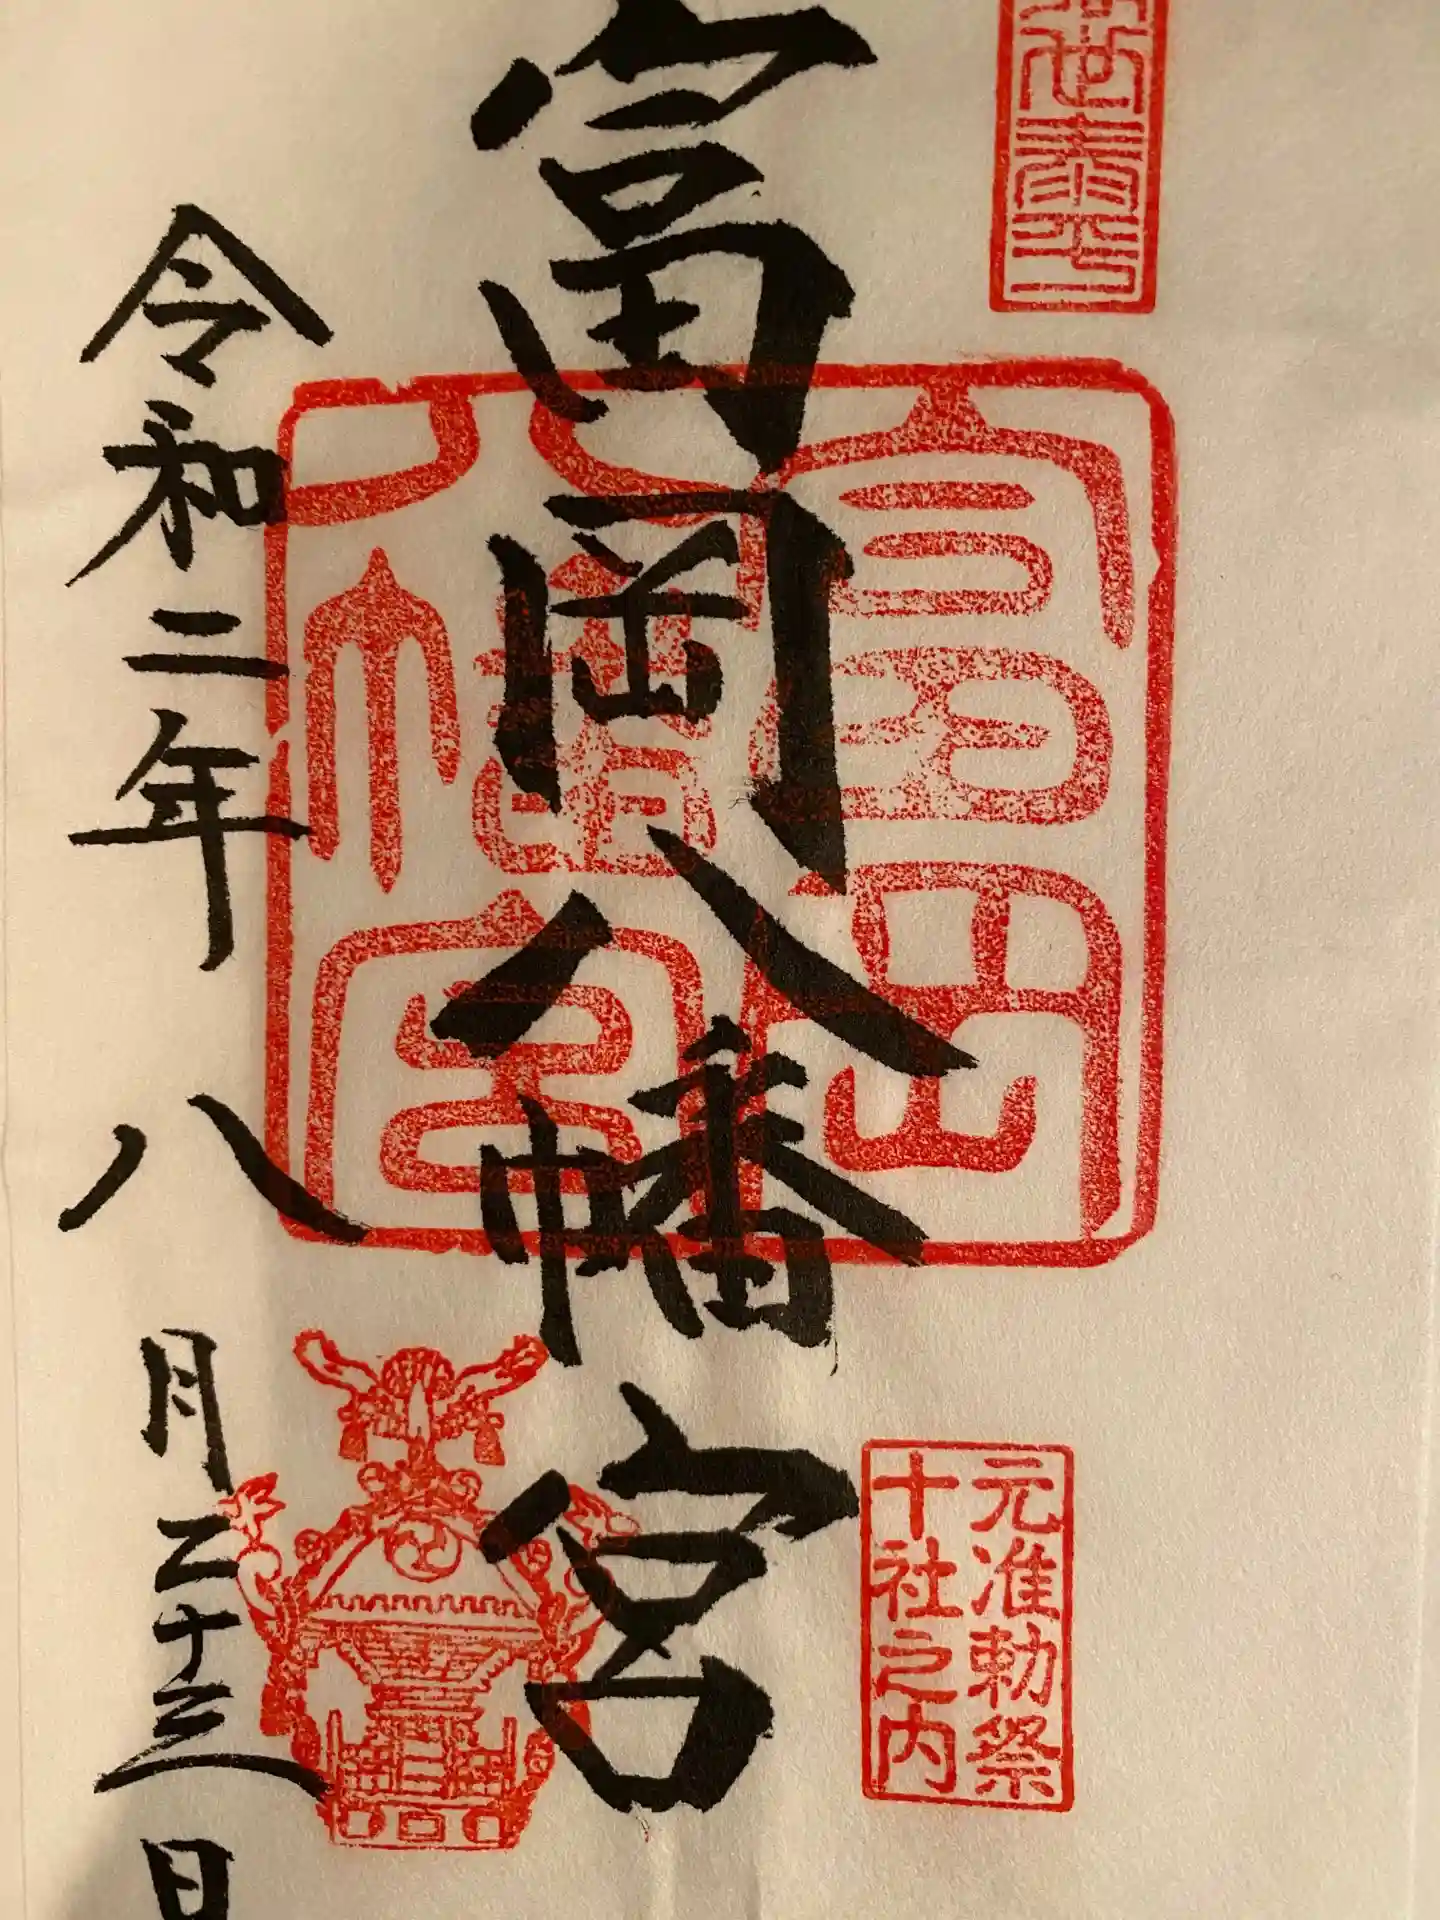 世泰平
富岡八幡宮
富岡
八幡宮
元准勅祭
十社之内
令和二年八月二十三日